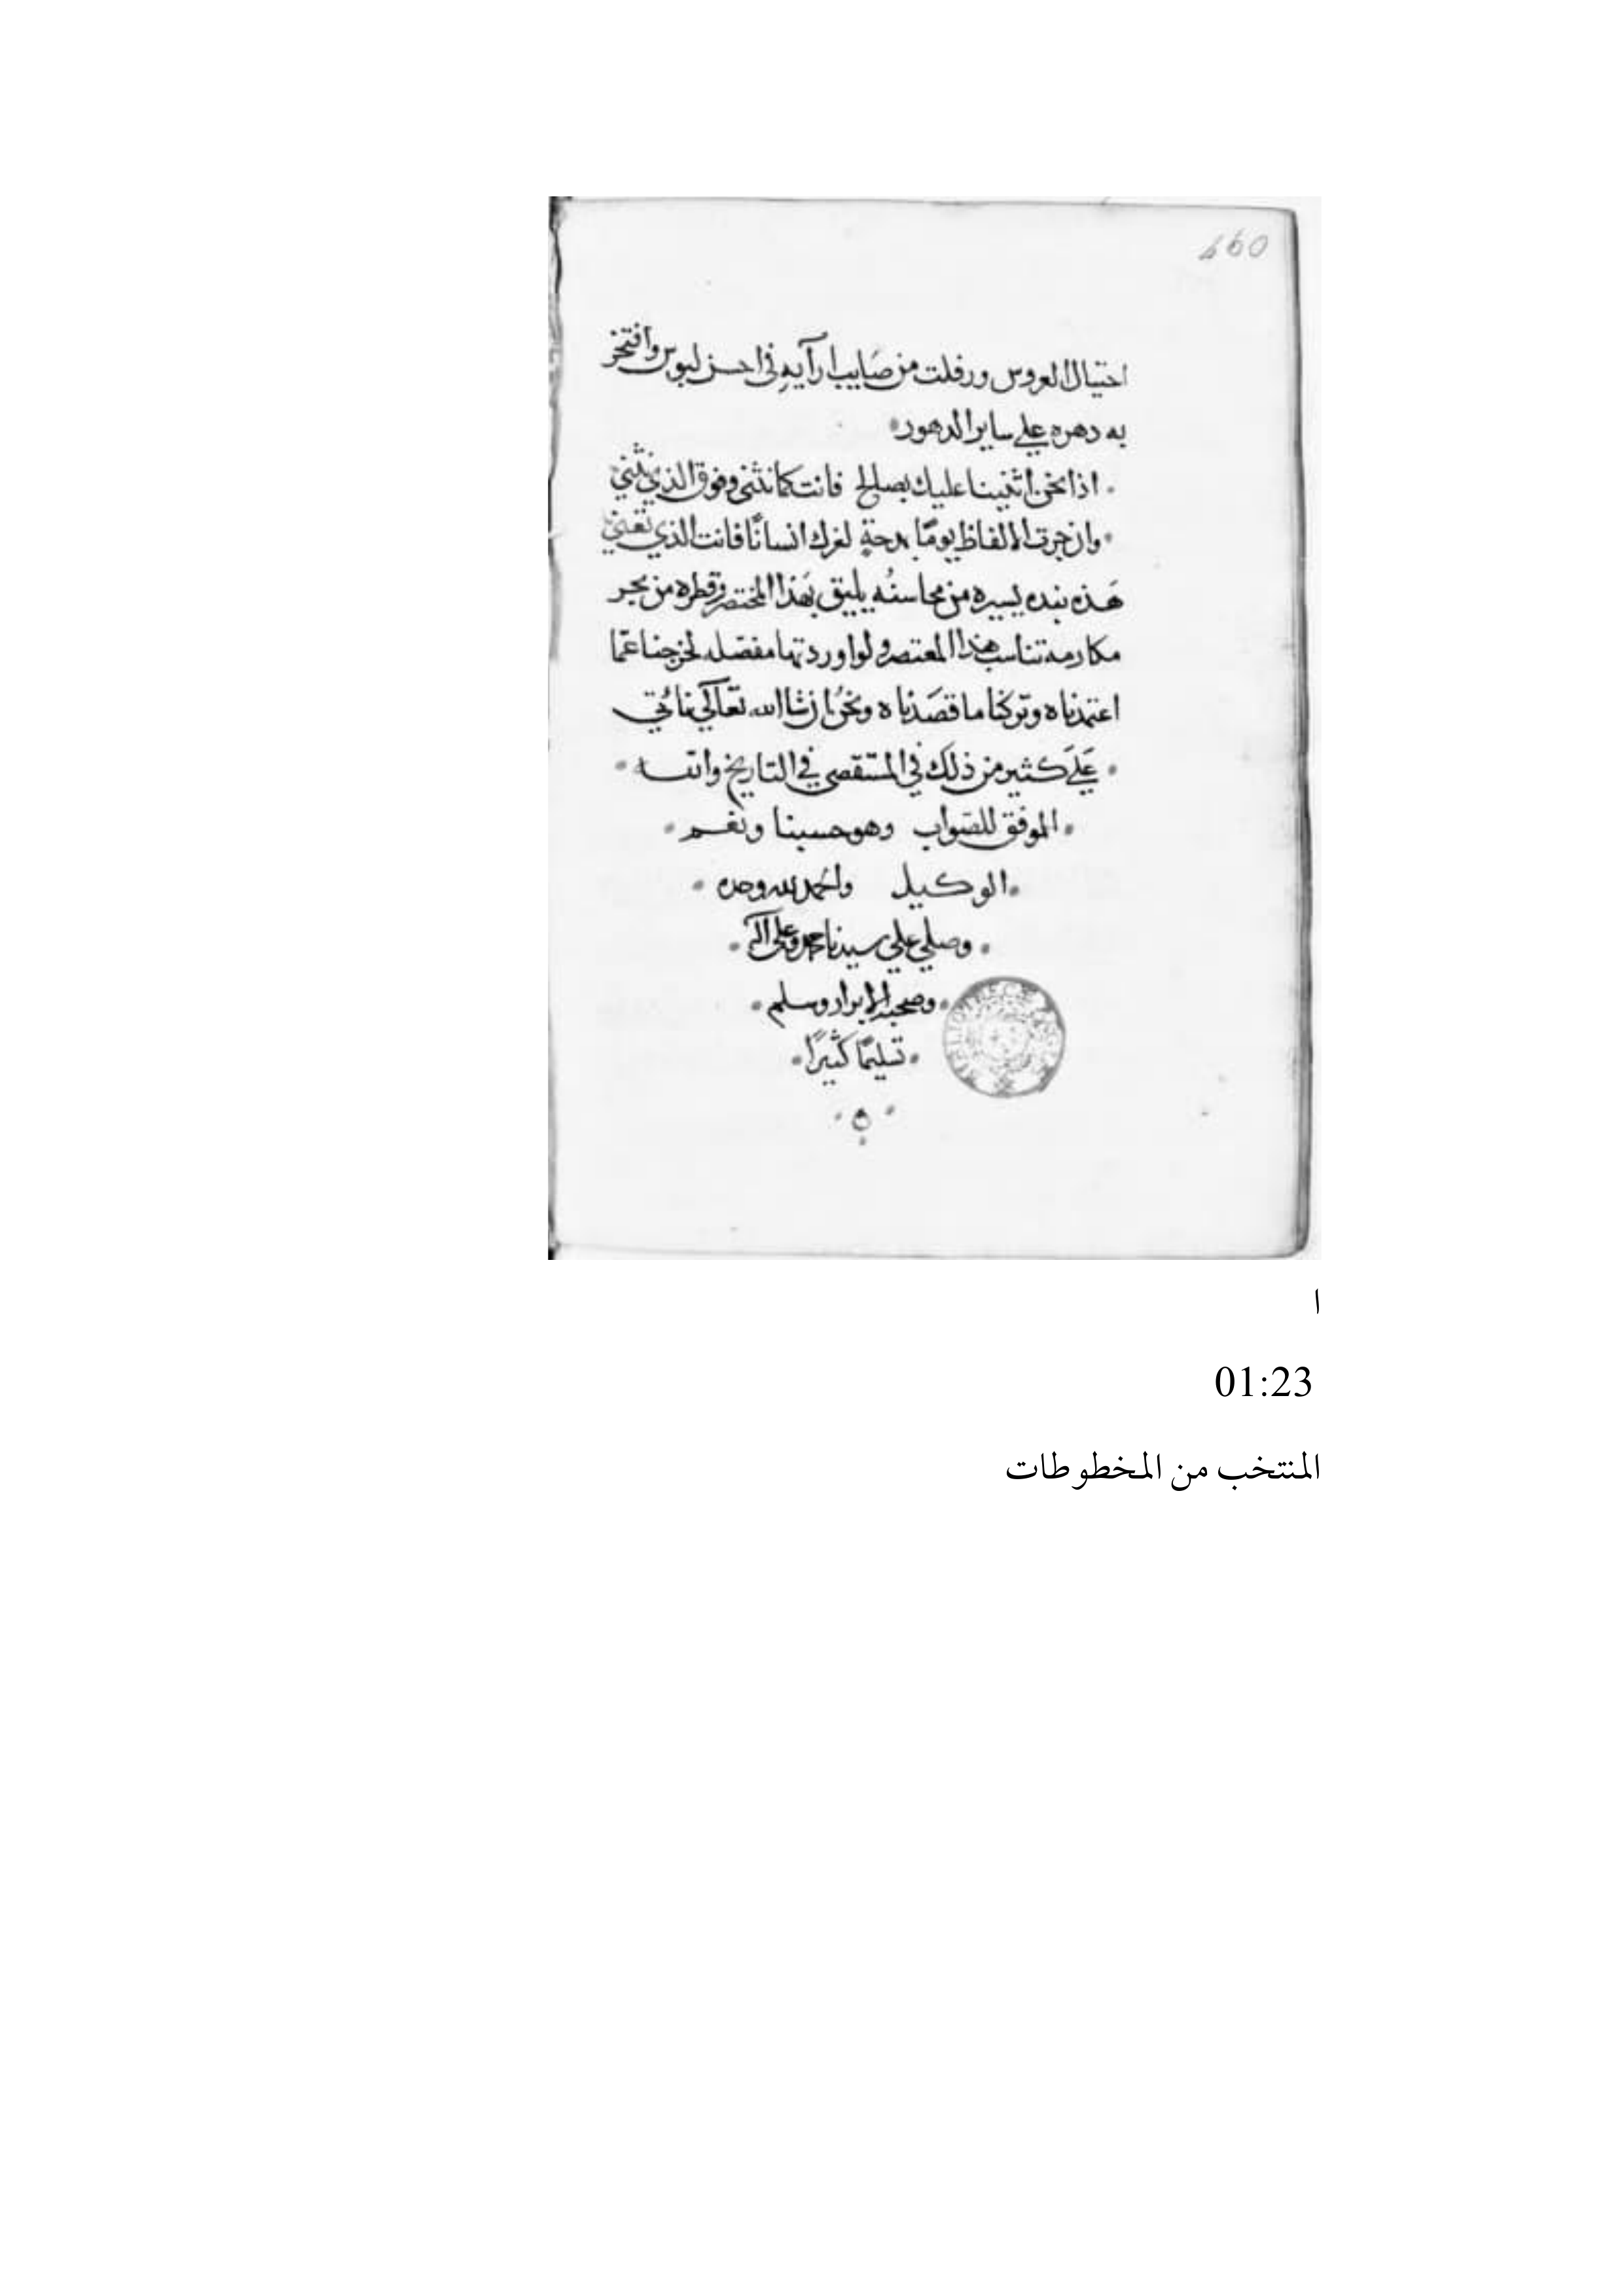 460
احتيال العروس ورفلت من صايب ارآيه في احسن لبوس وافتخر
به دهره علي ساير الدهور
اذا نحن اثنينا عليك بصالح فانت كما نثني وفوق الذي نثني
وان جرت الالفاظ يومًا بمدحةٍ لغيرك انسانًا فانت الذي نعني
هَذه نبده يسيره من محاسنُه يليق بهَذا المختصر وقطره من بحر
مكارمه تناسب هذا المعتصر ولو اوردتها مفصّله لخرجنا عمّا
اعتمدناه وتركنا ما قصَدناه ونحنُ ان شا الله تعَالي نأتي
عَلَي كثير من ذلك في المستقصي في التاريخ والله
الموفق للصّواب وهو حسبنا ونعم
الوكيل والحمد لله وحده
وصلي علي سيدنا محمد وعلى آله
وصحبه الابرار وسلم
تسليمًا كثيرًا
ه
ا
01:23
المنتخب من المخطوطات